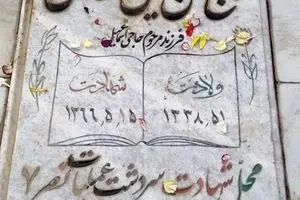 فرزند مرحوم حاجی اسمعیل
ولادت شهادت
۱۳۳۸،۵،۱ ۱۳۶۶،۵،۱۵
محل شهادت سردشت عملیات نصر ۷